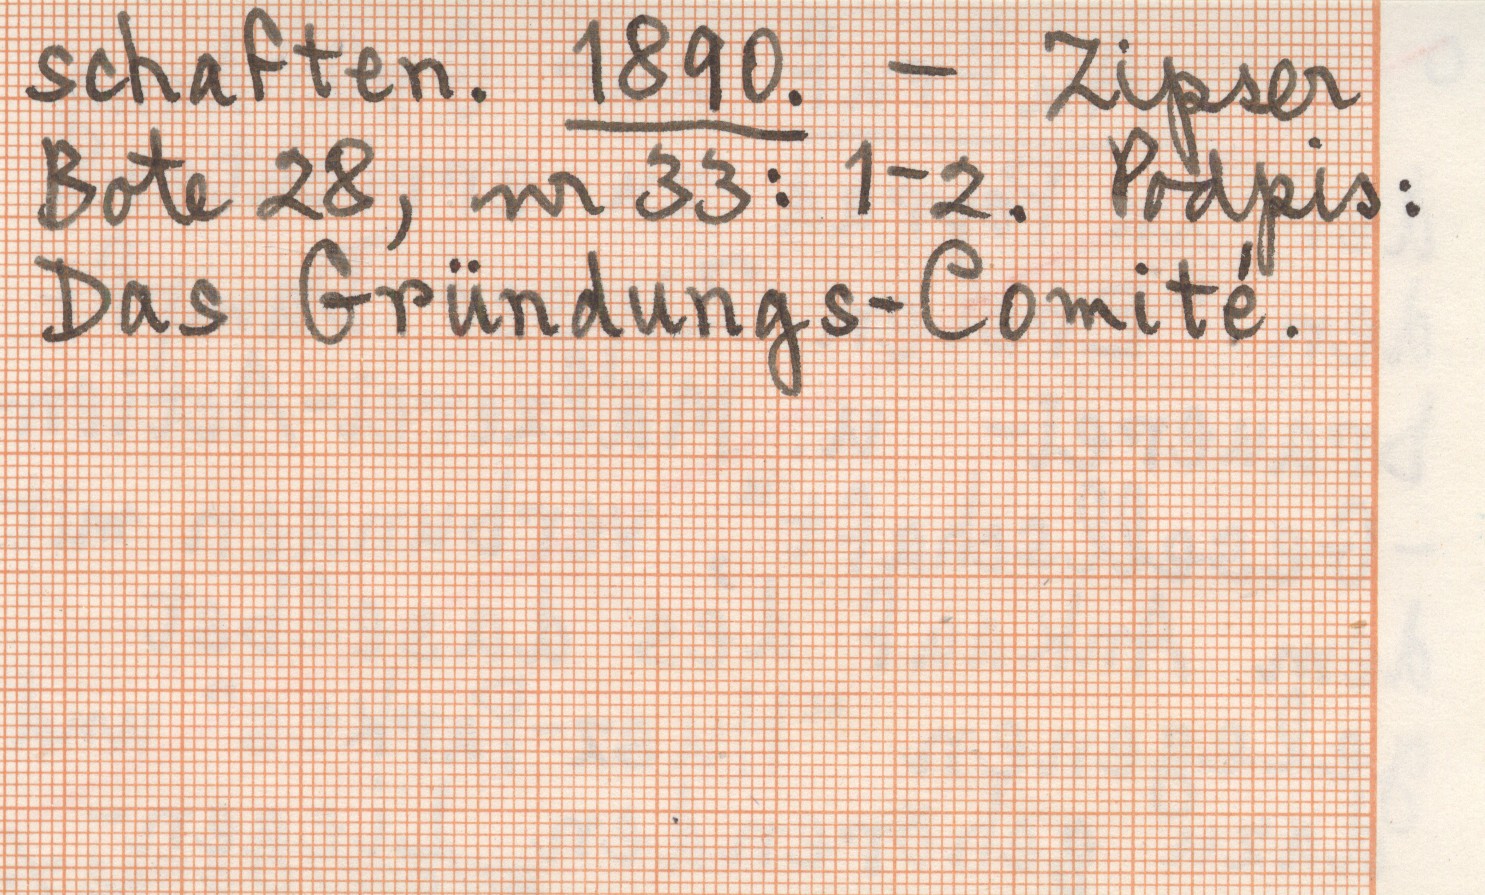 schaften. 1890. — Zipser
Bote 28, nr 33: 1-2. Podpis:
Das Gründungs-Comité.